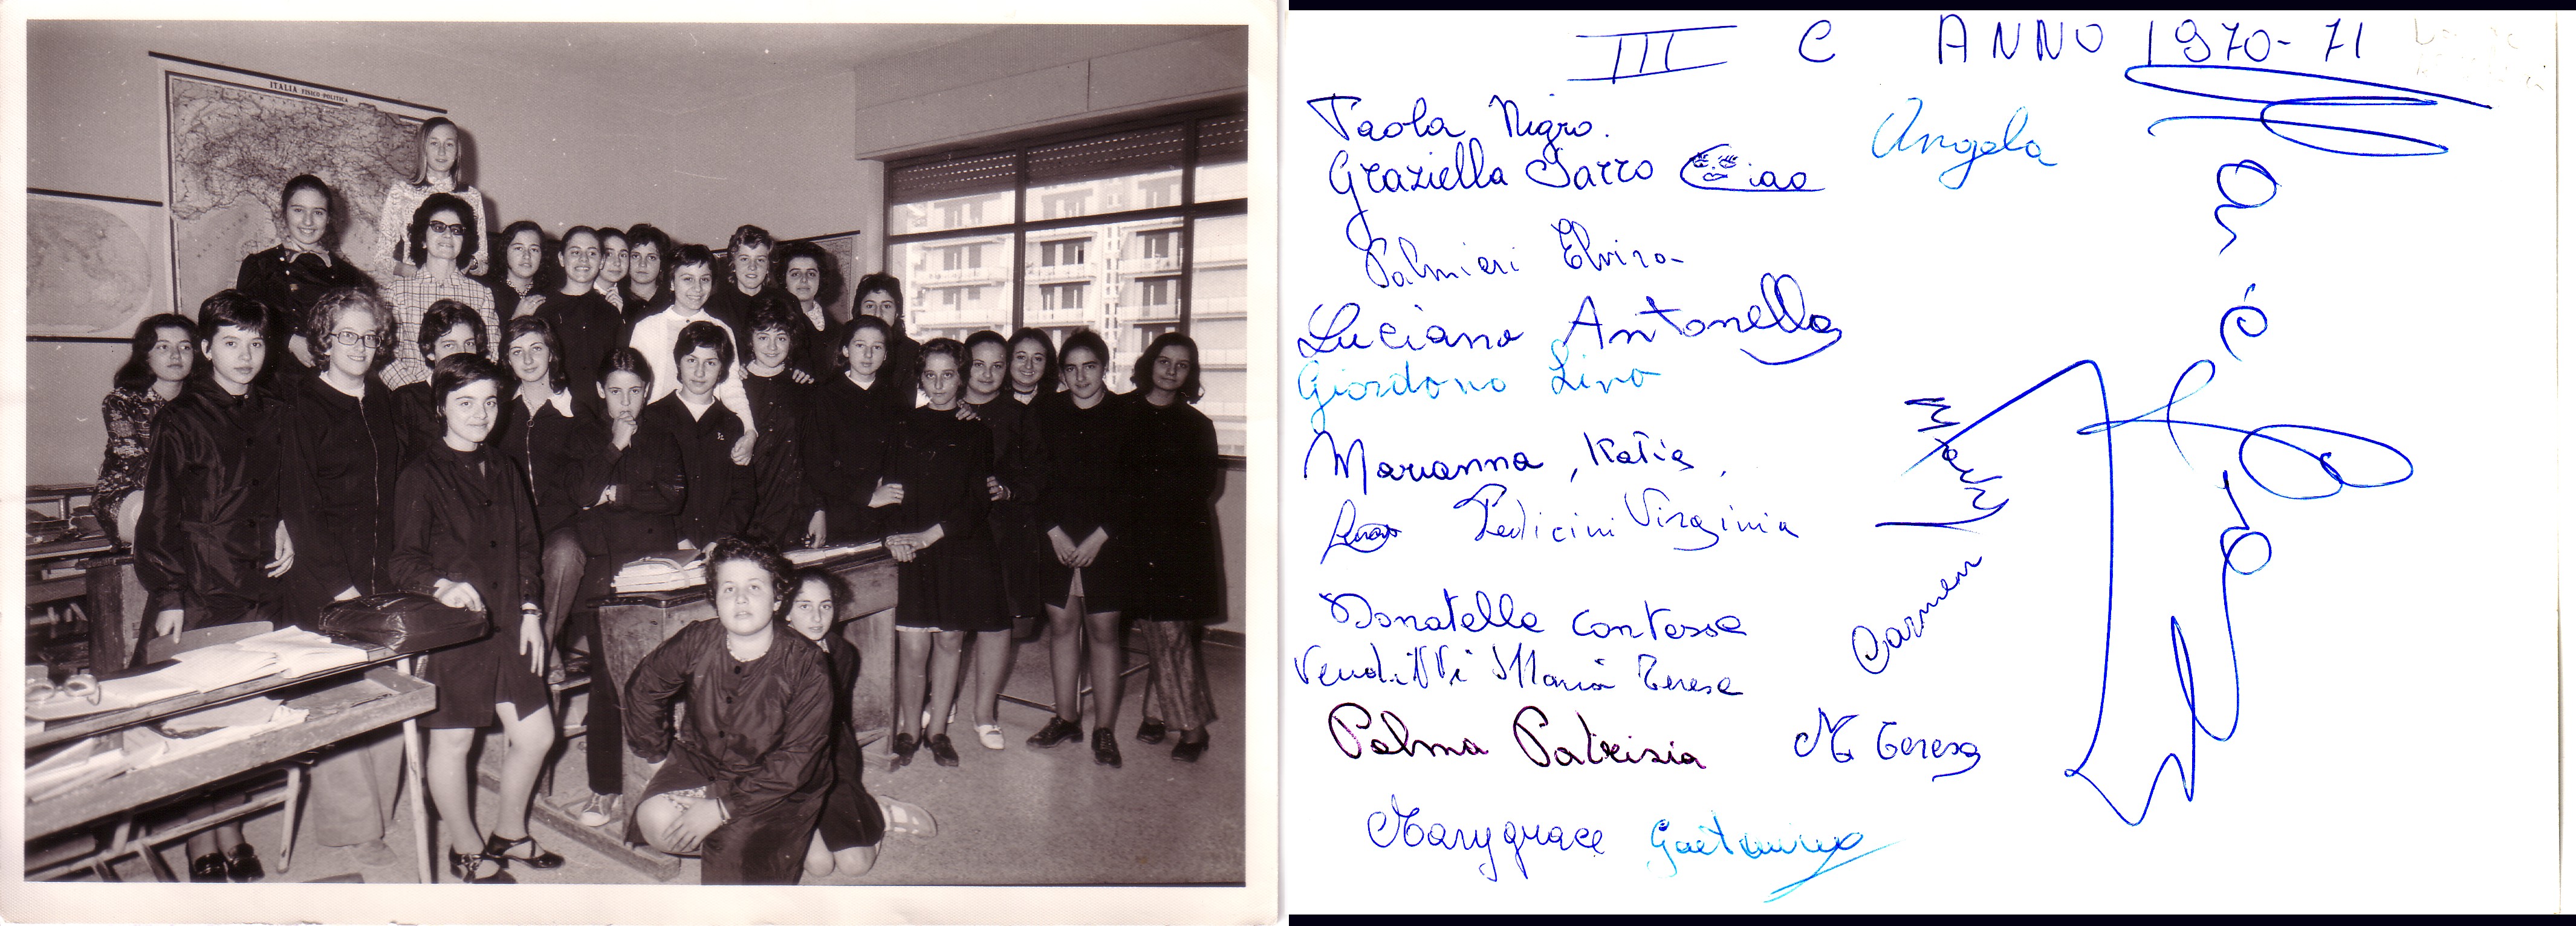 ITALIA FISICO POLITICA
III C ANNO 1970-71
Paola Nigro.
Graziella Sarro Ciao
Angela
Palmieri Elvira
Luciano Antonella
Giordano Lina
Marianna, Katia,
Pedicini Virginia
Mary
Carmen
Donatella Contessa
Venditti Maria Teresa
Palma Patrizia M Teresa
Marygrace Gaetanina